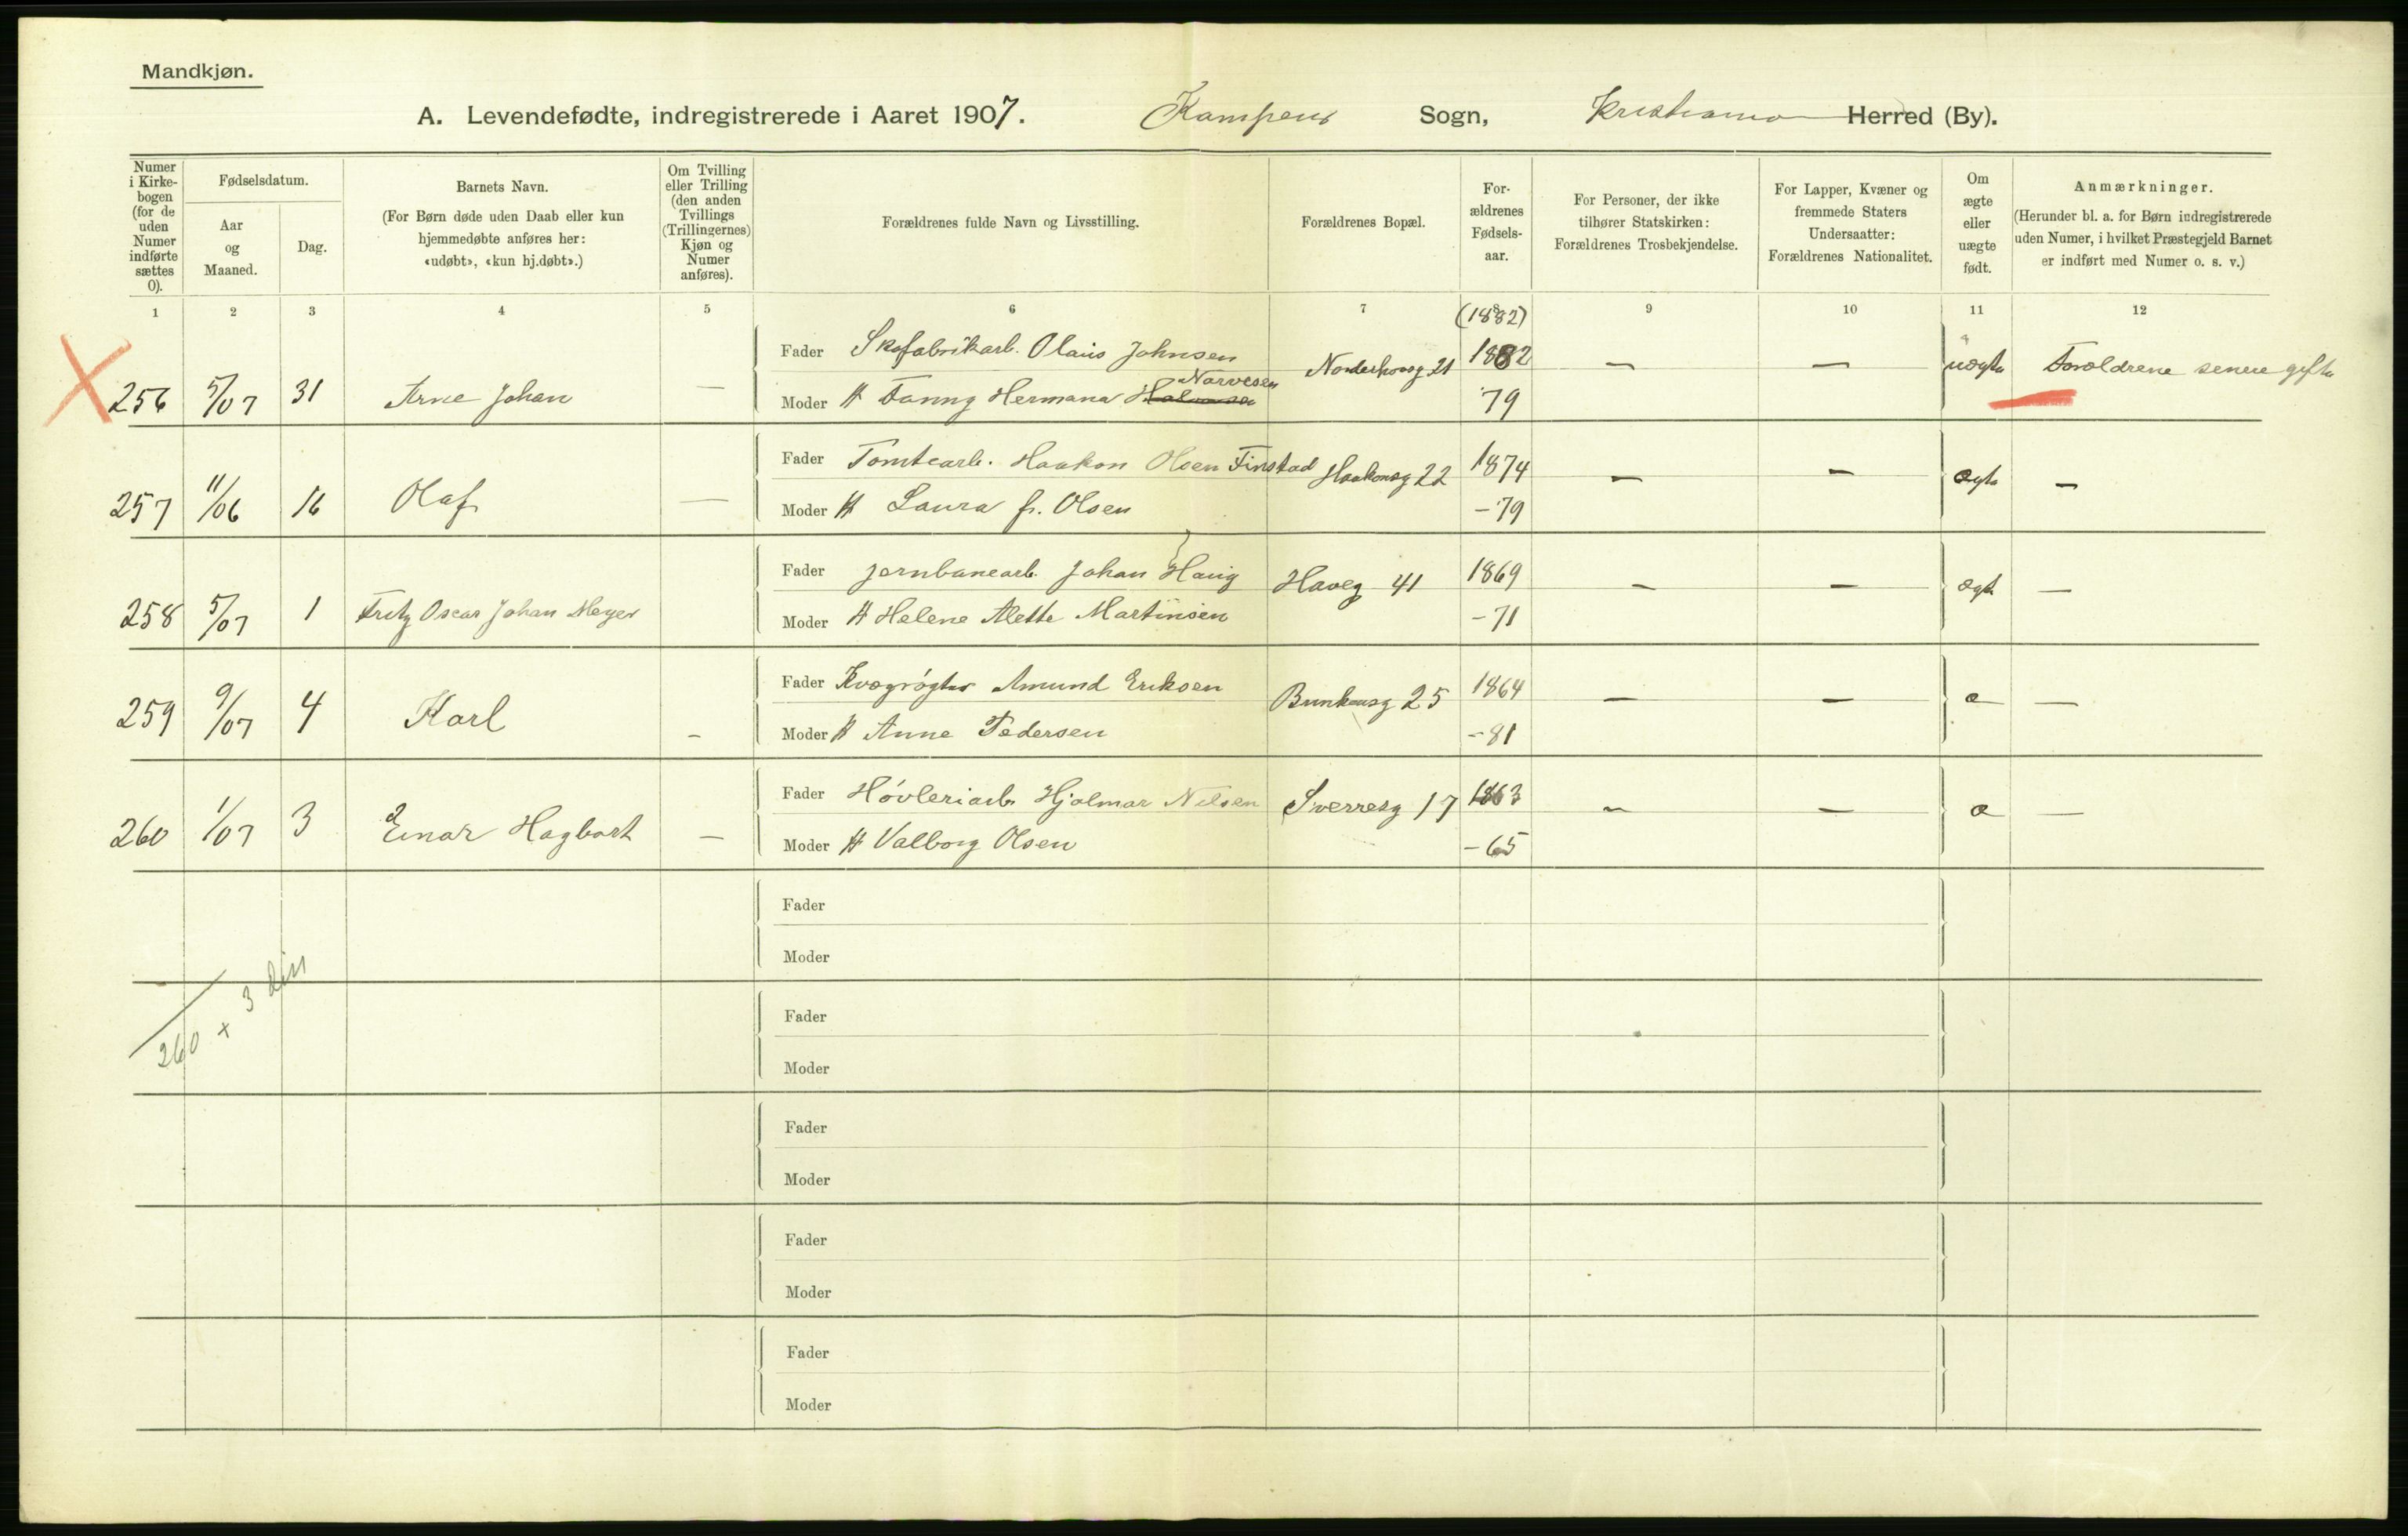 Mandkjøn.
A. Levendefødte, indregistrerede i Aaret 1907. Kampens Sogn, Kristiania Herred (By).
Numer i Kirkebogen (for de uden Numer indførte sættes 0).
Fødselsdatum.
Aar og Maaned.
Dag.
Barnets Navn.
(For Børn døde uden Daab eller kun hjemmedøbte anføres her: «udøbt», «kun hj.døbt».)
Om Tvilling eller Trilling (den anden Tvillings (Trillingernes) Kjøn og Numer anføres).
Forældrenes fulde Navn og Livsstilling.
Forældrenes Bopæl.
Forældrenes Fødselsaar.
For Personer, der ikke tilhører Statskirken: Forældrenes Trosbekjendelse.
For Lapper, Kvæner og fremmede Staters Undersaatter: Forældrenes Nationalitet.
Om ægte eller uægte født.
Anmærkninger.
(Herunder bl. a. for Børn indregistrerede uden Numer, i hvilket Præstegjeld Barnet er indført med Numer o. s. v.)
1 2 3 4 5 6 7 8 9 10 11 12
(1882)
Fader Skofabrikarb. Olaus Johnsen Norderhovsg 21 1882 — — uægte Forældrene senere gifte
Narvesen
256 5/07 31 Arne Johan — Moder H Fanny Hermana 79
Fader Tomtearb. Haakon Olsen Finstad Haakonsg 22 1874 — — ægte —
257 11/06 16 Olaf — Moder H Laura f. Olsen -79
Fader Jernbanearb. Johan Haug Haveg 41 1869 — — ægte —
258 5/07 1 Fritz Oscar Johan Meyer Moder H Helene Alette Martinsen -71
Fader Kvægrøgter Amund Eriksen 25 1864 — — æ —
259 9/07 4 Karl - Moder H Anne Pedersen -81
Fader Høvleriarb. Hjalmar Nilsen Sverresg 17 1863 — — æ —
260 1/07 3 Einar Hagbart — Moder H Valborg Olsen -65
Fader
Moder
260 + 3
Fader
Moder
Fader
Moder
Fader
Moder
Fader
Moder